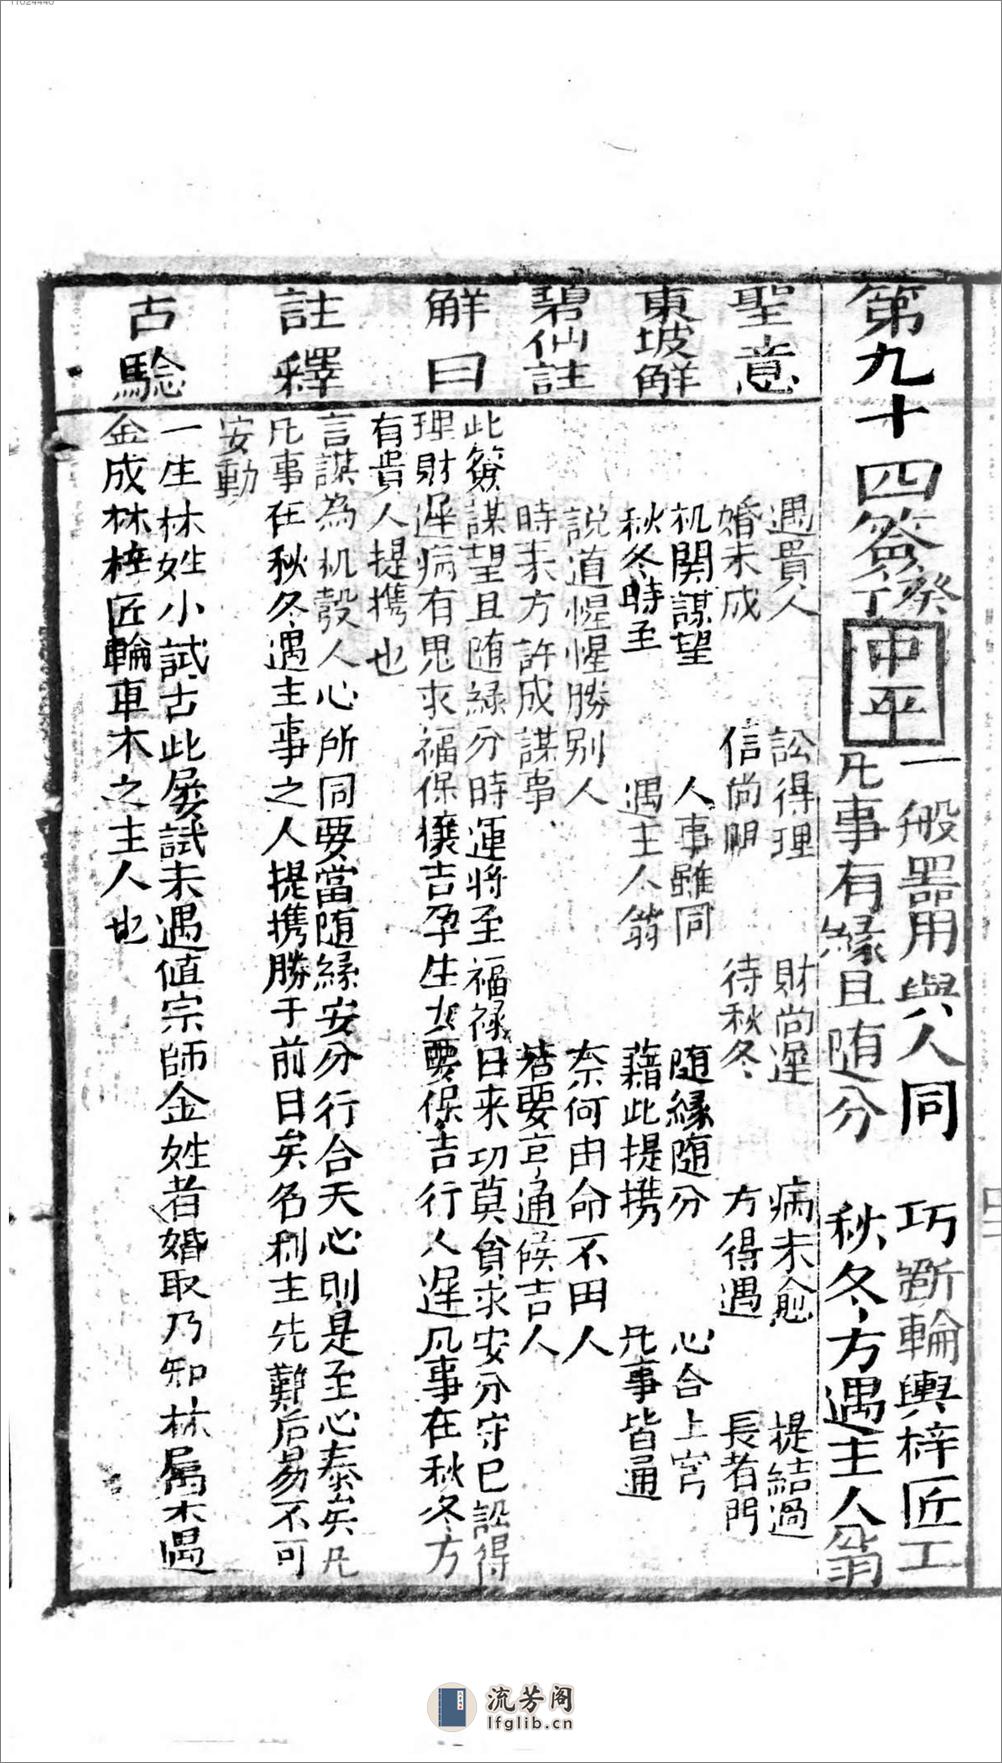 11024440
第九十四簽 癸丁 中平
一般器用與人同 巧斲輪輿梓匠工
凡事有緣且随分 秋冬方遇主人翁
聖意
遇貴人 訟得理 財尚遲 病未愈 提結過
婚未成 信尚阻 待秋冬 方得遇 長者門
東坡觧
机関謀望 人事雖同 随緣随分 心合上穹
秋冬時至 遇主人翁 藉此提携 凡事皆通
碧仙註
説道惺惺勝别人 奈何由命不由人
時未方許成謀事 若要亨通候吉人
觧曰
此簽謀望且随緑分時運將至福禄日来切莫貪求安分守已訟得
理財遲病有思求福保懷吉孕生女要保吉行人遲凡事在秋冬方
有貴人提携也
註釋
言謀為机彀人心所同要當随緣安分行合天心則是至心泰矣凡
凡事在秋冬遇主事之人提携勝于前日矣名利主先難后易不可
妄動
古騐
一生林姓小試占此屡試未遇值宗師金姓者婚取乃知林属木遇
金成林梓匠輪車木之主人也
流芳阁
lfglib.cn